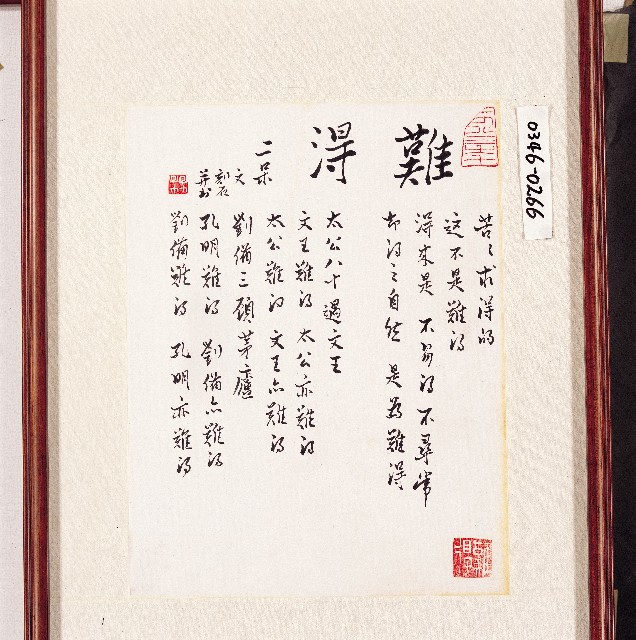 難得
苦々求得的
這不是難得
得來是 不易得 不尋常
却得之自然 是為難得
太公八十遇文王
文王難得 太公亦難得
太公難得 文王亦難得
劉備三顧茅廬
孔明難得 劉備亦難得
劉備難得 孔明亦難得
二呆
文
刻石
並書
0346-0266